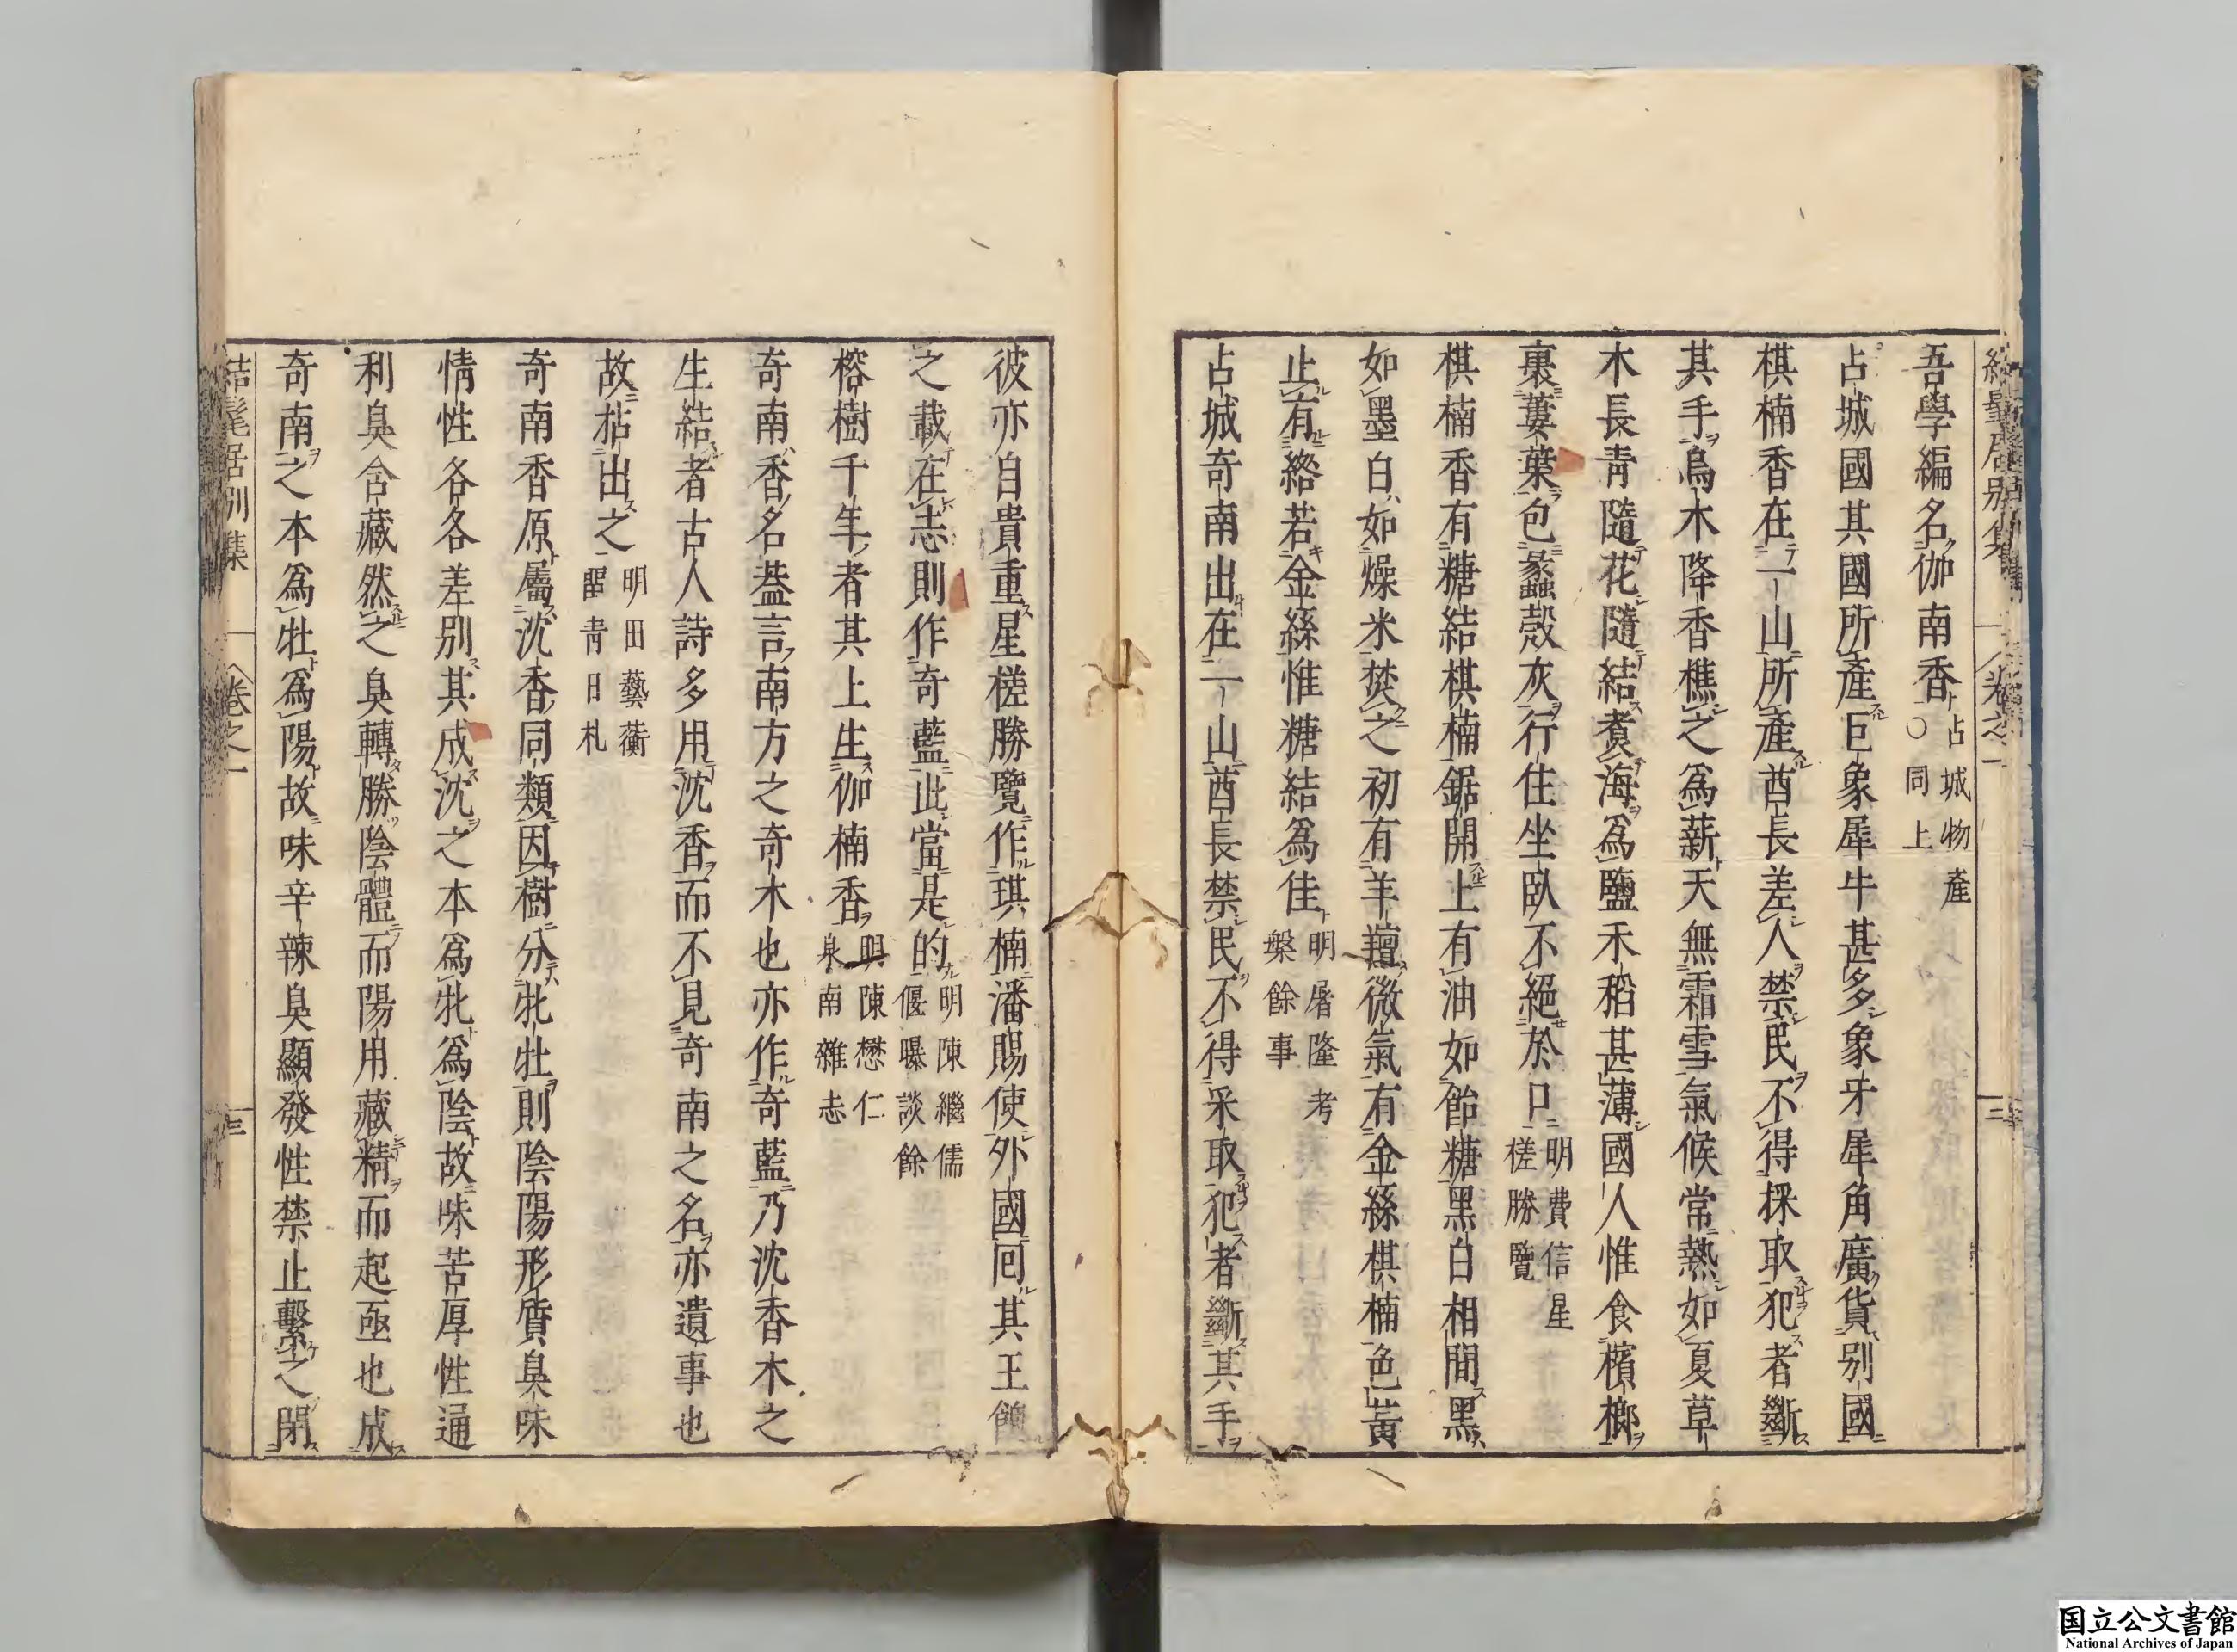 吾學編名伽南香 占城物產 〇同上
占城國其國所產巨象犀牛甚多象牙犀角廣貨別國
棋楠香在一山所產酋長差人禁民不得採取犯者斷
其手烏木降香樵之為薪天無霜雪氣候常熱如夏草
木長青隨花隨結煑海為鹽禾稻甚薄國人惟食檳榔
裹蔞葉包蠡殼灰行住坐臥不絕於口 明費信星槎勝覽
棋楠香有糖結棋楠鋸開上有油如飴糖黑白相間黑
如墨白如燥米焚之初有羊羶微氣有金絲棋楠色黃
止有綹若金絲惟糖結為佳 明屠隆考槃餘事
占城奇南出在一山酋長禁民不得采取犯者斷其手
彼亦自貴重星槎勝覽作琪楠潘賜使外國回其王餽
之載在志則作奇藍此當是的 明陳繼儒偃曝談餘
榕樹千年者其上生伽楠香 明陳懋仁泉南雜志
奇南香名葢言南方之奇木也亦作奇藍乃沈香木之
生結者古人詩多用沈香而不見奇南之名亦遺事也
故拈出之 明田藝蘅留青日札
奇南香原屬沈香同類因樹分牝牡則陰陽形質臭味
情性各各差別其成沈之本為牝為陰故味苦厚性通
利臭含藏然之臭轉勝陰體而陽用藏精而起亟也成
奇南之本為牡為陽故味辛辣臭顯發性禁止繫之閉
結髦居別集 卷之一 三
国立公文書館
National Archives of Japan